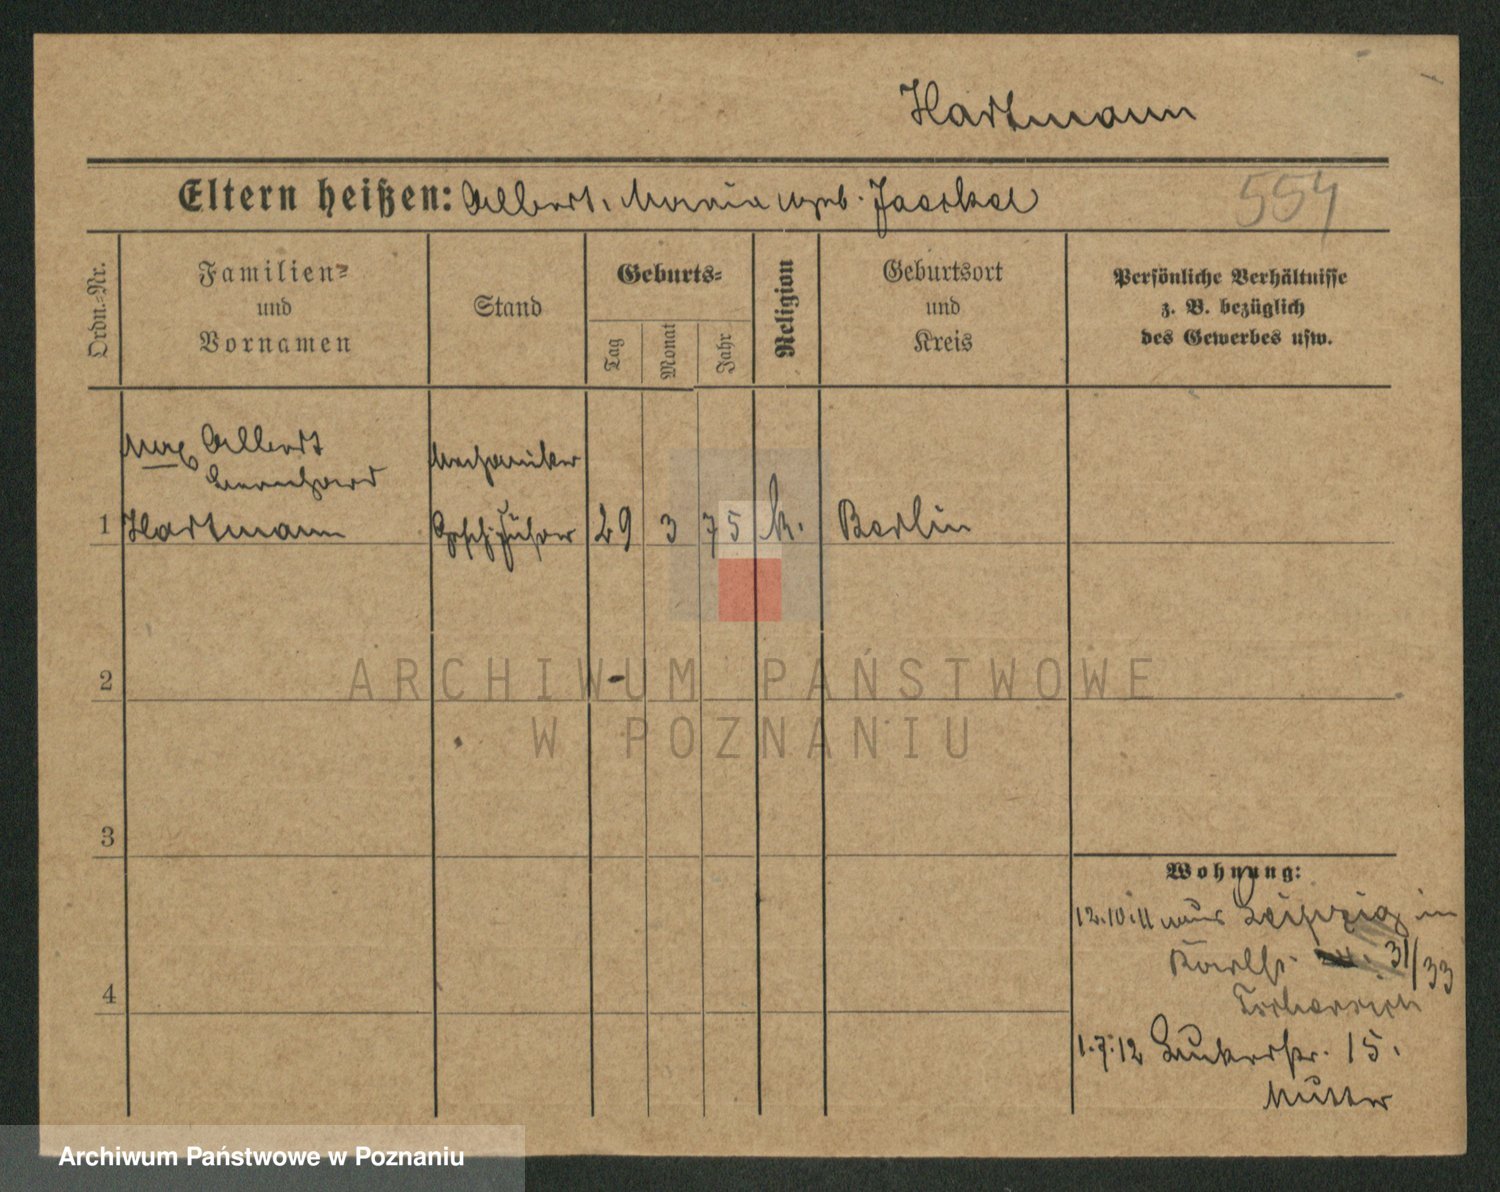 Hartmann
Eltern heißen: Albert, Maria geb. Jaeckel
554
Ordn.-Nr.
Familien- und Vornamen
Stand
Geburts-
Tag
Monat
Jahr
Religion
Geburtsort und Kreis
Persönliche Verhältnisse
z. B. bezüglich
des Gewerbes usw.
Max Albert
Bernhard
Mechaniker
1 Hartmann Geschführer 29 3 75 k. Berlin
2
3
4
Wohnung:
12.10.11 aus Leipzig in
Karlst. 31/33
1.7.12 15.
Mutter
ARCHIWUM PAŃSTWOWE
W POZNANIU
Archiwum Państwowe w Poznaniu